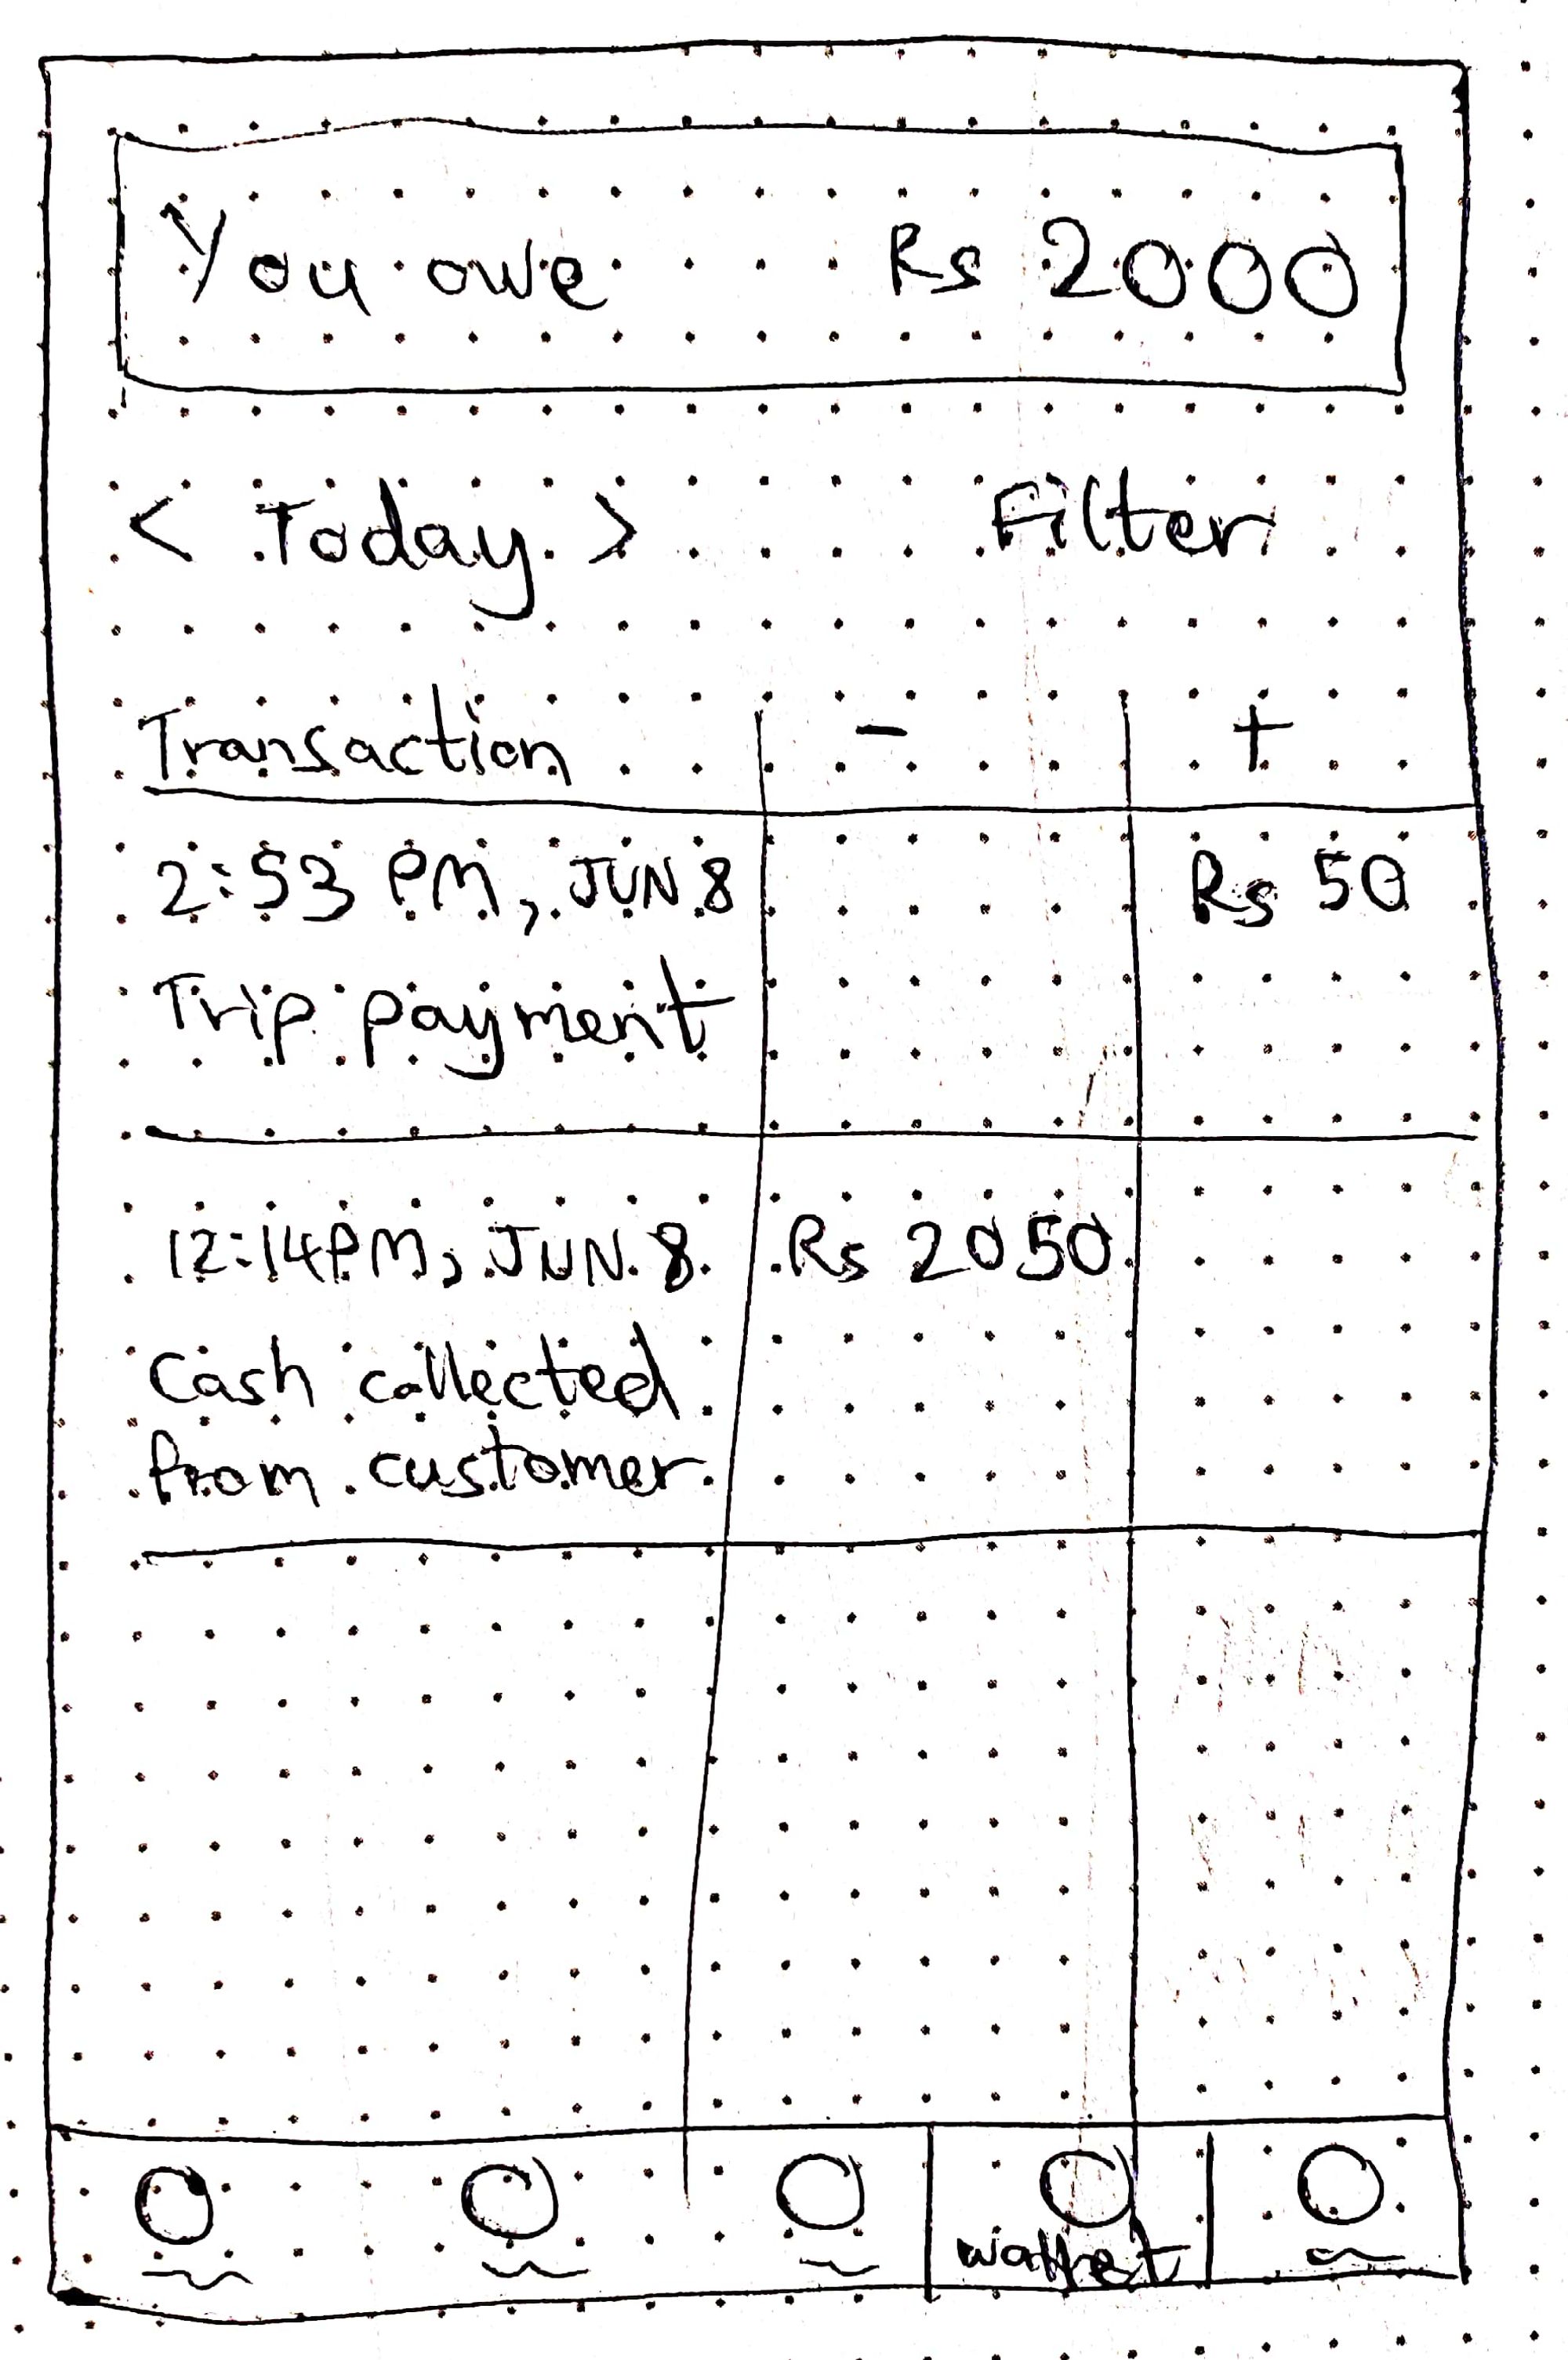 You owe Rs 2000
< Today > Filter
Transaction - +
2:53 PM, JUN 8 Rs 50
Trip payment
12:14PM, JUN 8 Rs 2050
Cash collected
from customer
wallet